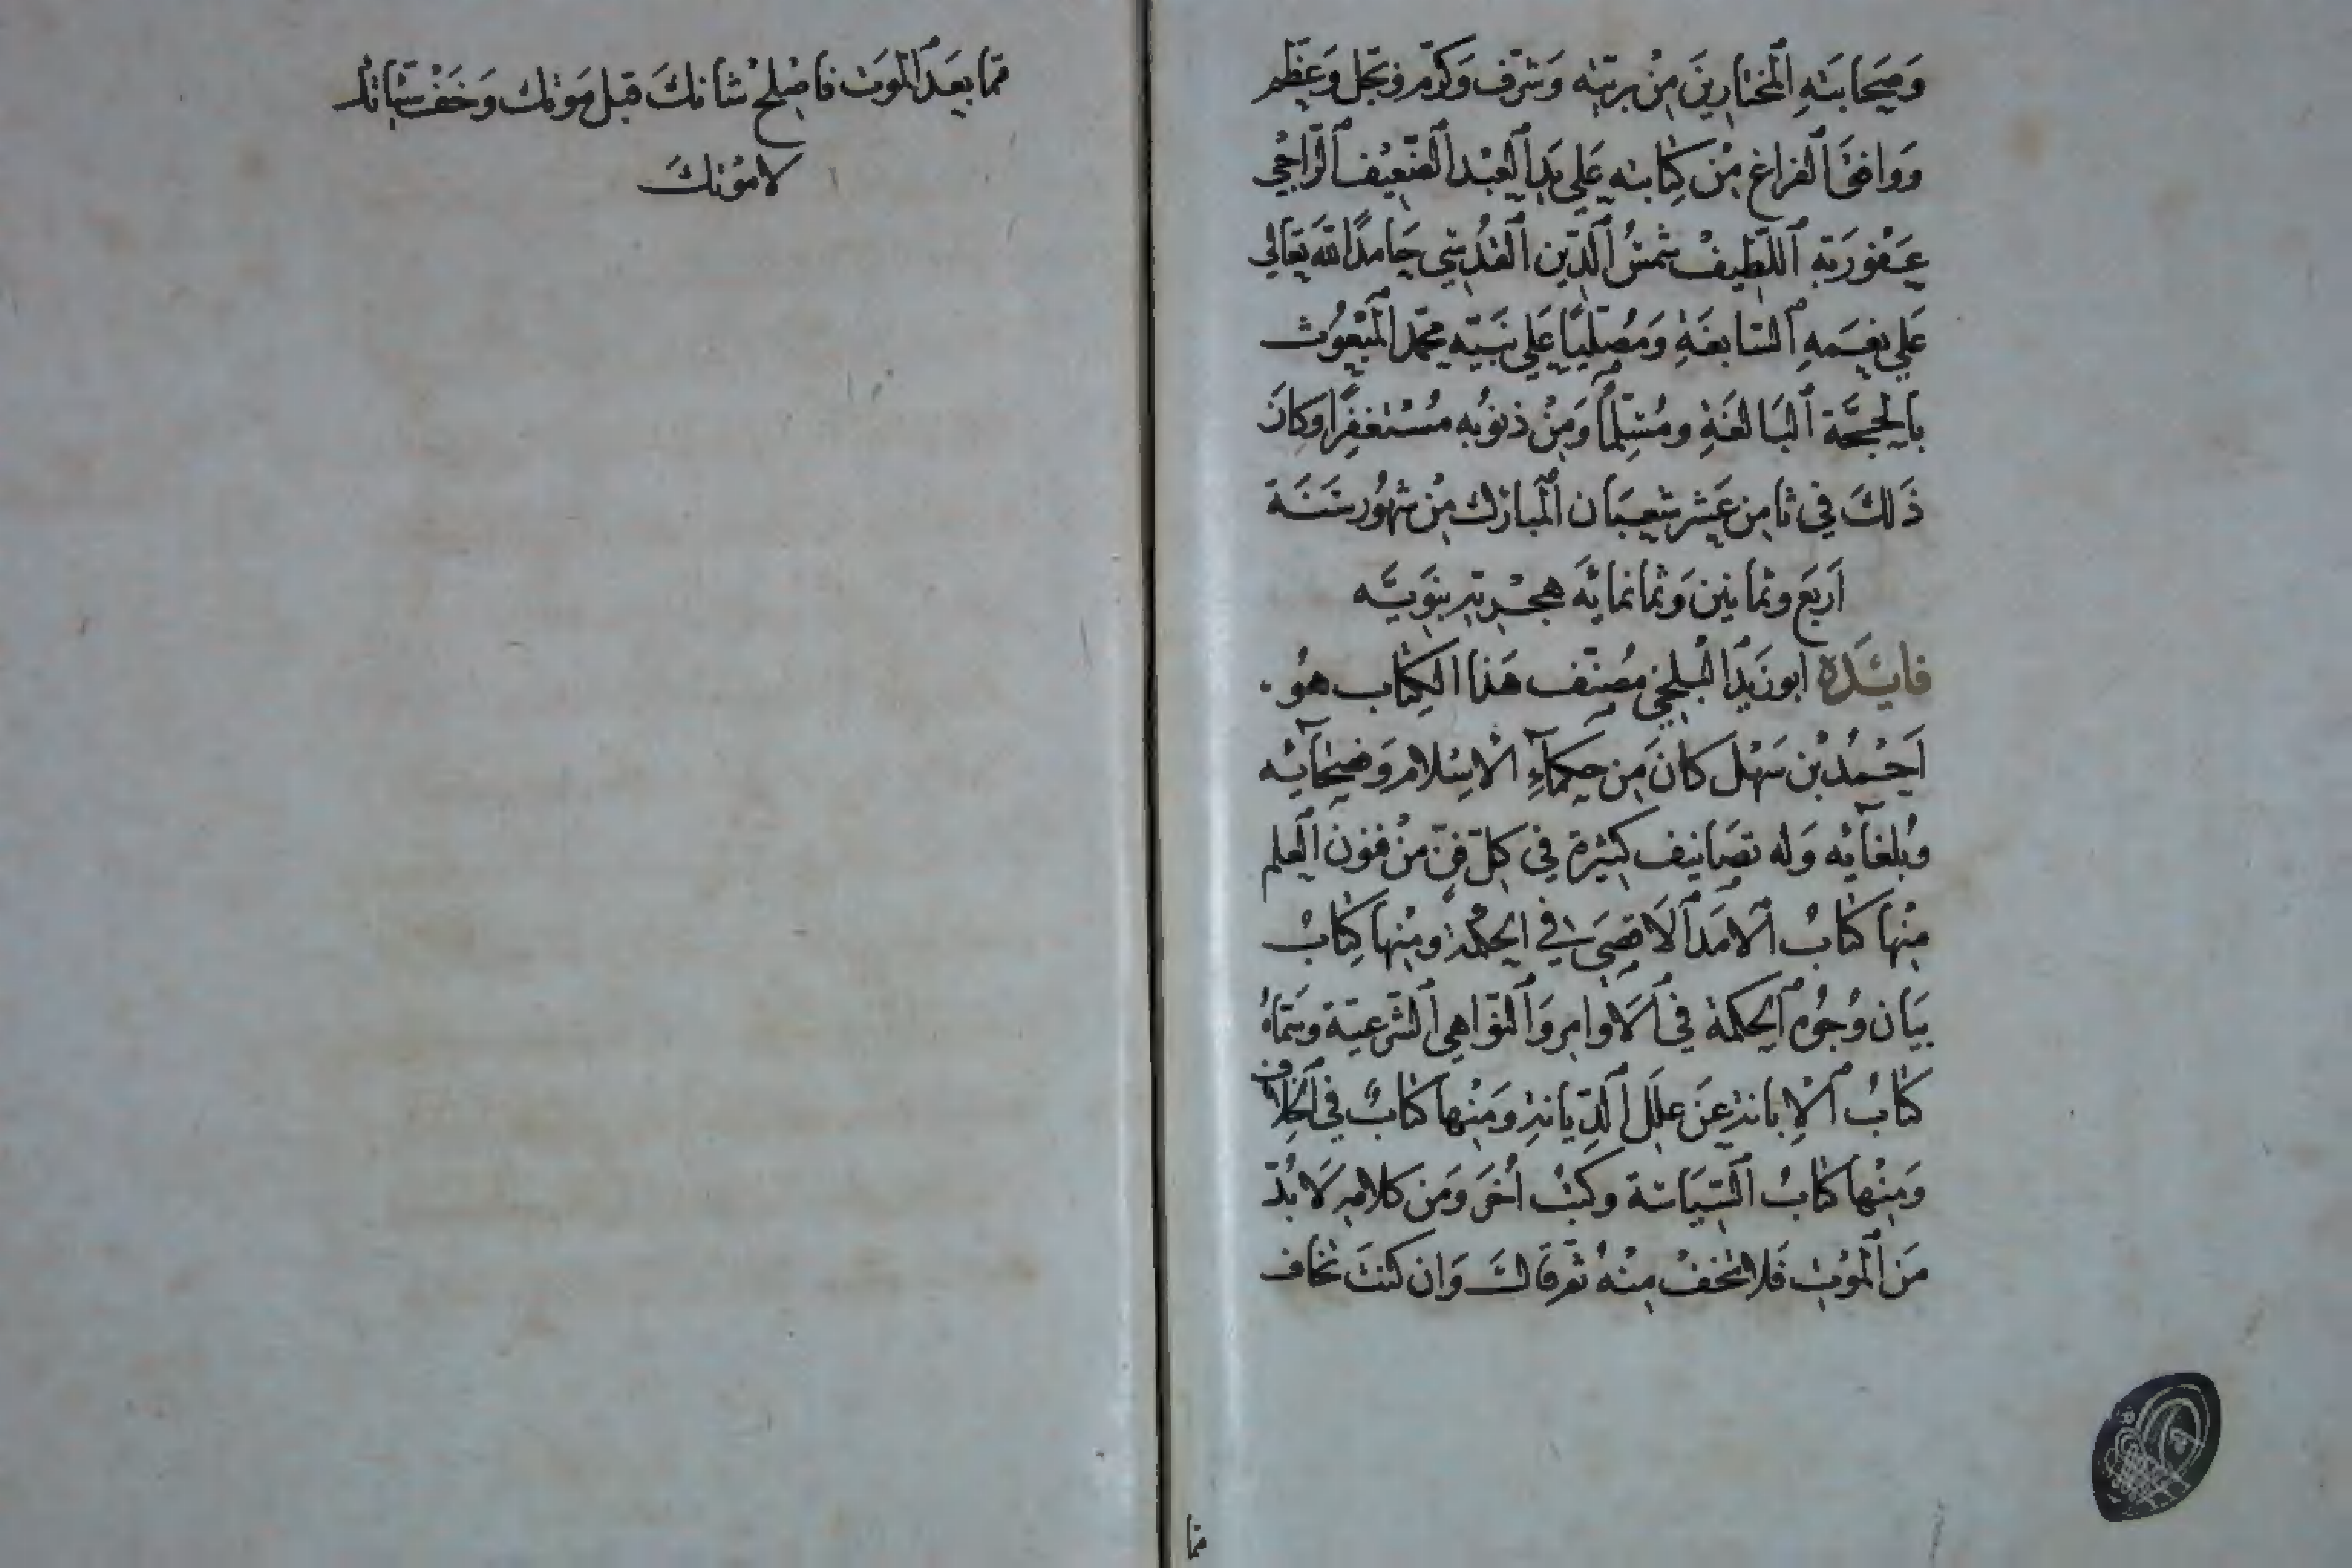 وَصَحَابَتِهِ ٱلْمُخْتَارِينَ مِنْ بَرِيَّتِه وَشَرَّف وَكَرَّم وبَجَّل وَعَظَّم
وَوَافَقَ ٱلفراغ مِنْ كِتَابته عَلى يَدِ ٱلْعَبْد ٱلضَّعِيْف ٱلرَّاجِي
عَفْوَ رَبِّهِ ٱللَّطِيفْ شمسُ ٱلدِّين ٱلقُدْسِي حَامدًا لله تَعَالى
عَلى نِعَمِهِ ٱلسَّابغَةِ وَمُصَلِّيًا عَلى نَبيِّه محمّد ٱلْمَبْعُوث
بِالْحُجَّة ٱلْبَالغَةِ ومُسَلِّمًا وَمِنْ ذنوُبه مُسْتَغفِرًا وَكانَ
ذَلكَ فِي ثامِن عَشر شعبَان ٱلْمبَارَك مِنْ شهُور سَنَة
اَربَع وثمانين وَثمانمايَة هجْريّة نبَوِيَّه
فايدَة ابو زَيْد ٱلبلخي مُصَنّف هَذا الكِتَاب هُو
اَحْمَدُ بْن سَهْل كانَ مِن حكمآءِ الْاِسْلام وَفصحآيْه
وبُلغآيْه وَله تصَانيف كثيرة في كلّ فنّ مِنْ فنون ٱلعِلم
مِنْهَا كتَابُ ٱلامَد ٱلَاقصَى في الحِكْمة ومِنْهَا كِتَابُ
بيَان وُجُوه ٱلْحكمَة فِي ٱلَاوامِر وَٱلنَّوَاهِي ٱلشّرعيّة وسَمَّاهُ
كتَابُ ٱلْاِبانة عَنْ علَل ٱلدِّيانةِ وَمِنْها كتَابٌ في ٱلْاخلاق
وَمِنْها كتَابُ ٱلسّيَاسَة وكتبٌ اُخَر وَمن كلامِه لَا بُدّ
مَن ٱلْمَوْت فَلا تخَفْ مِنْهُ ثمّ قالَ وَان كنتَ تخاف
مما
ممّا بعَد ٱلموَت فاصْلحْ شانكَ قبل مَوتك وَخَفْ سيّاتك
لا مَوْتكَ